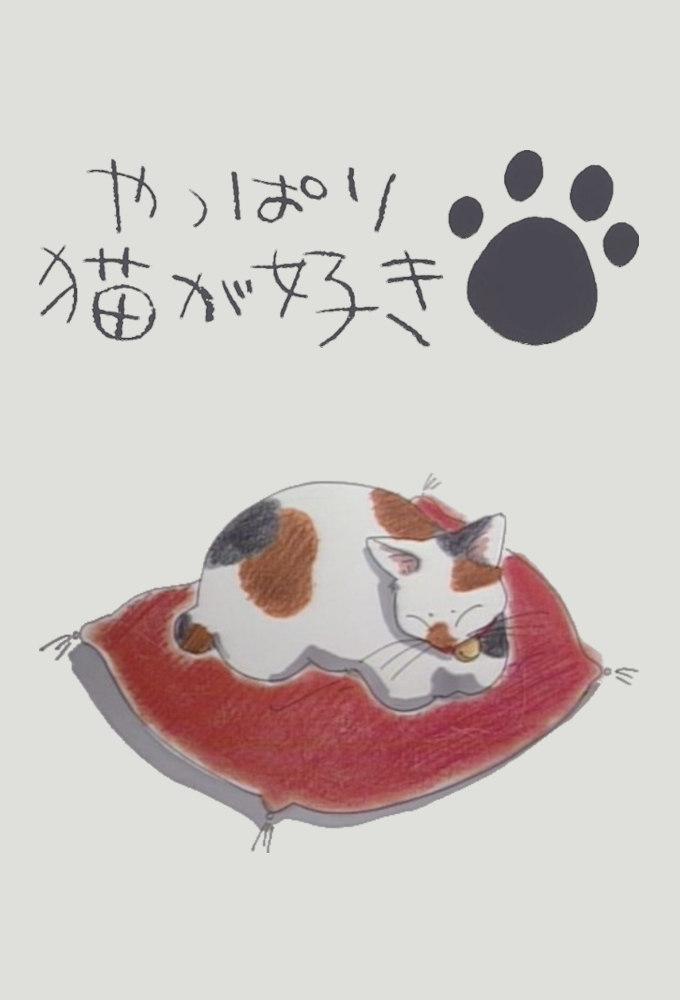 やっぱり
猫が好き